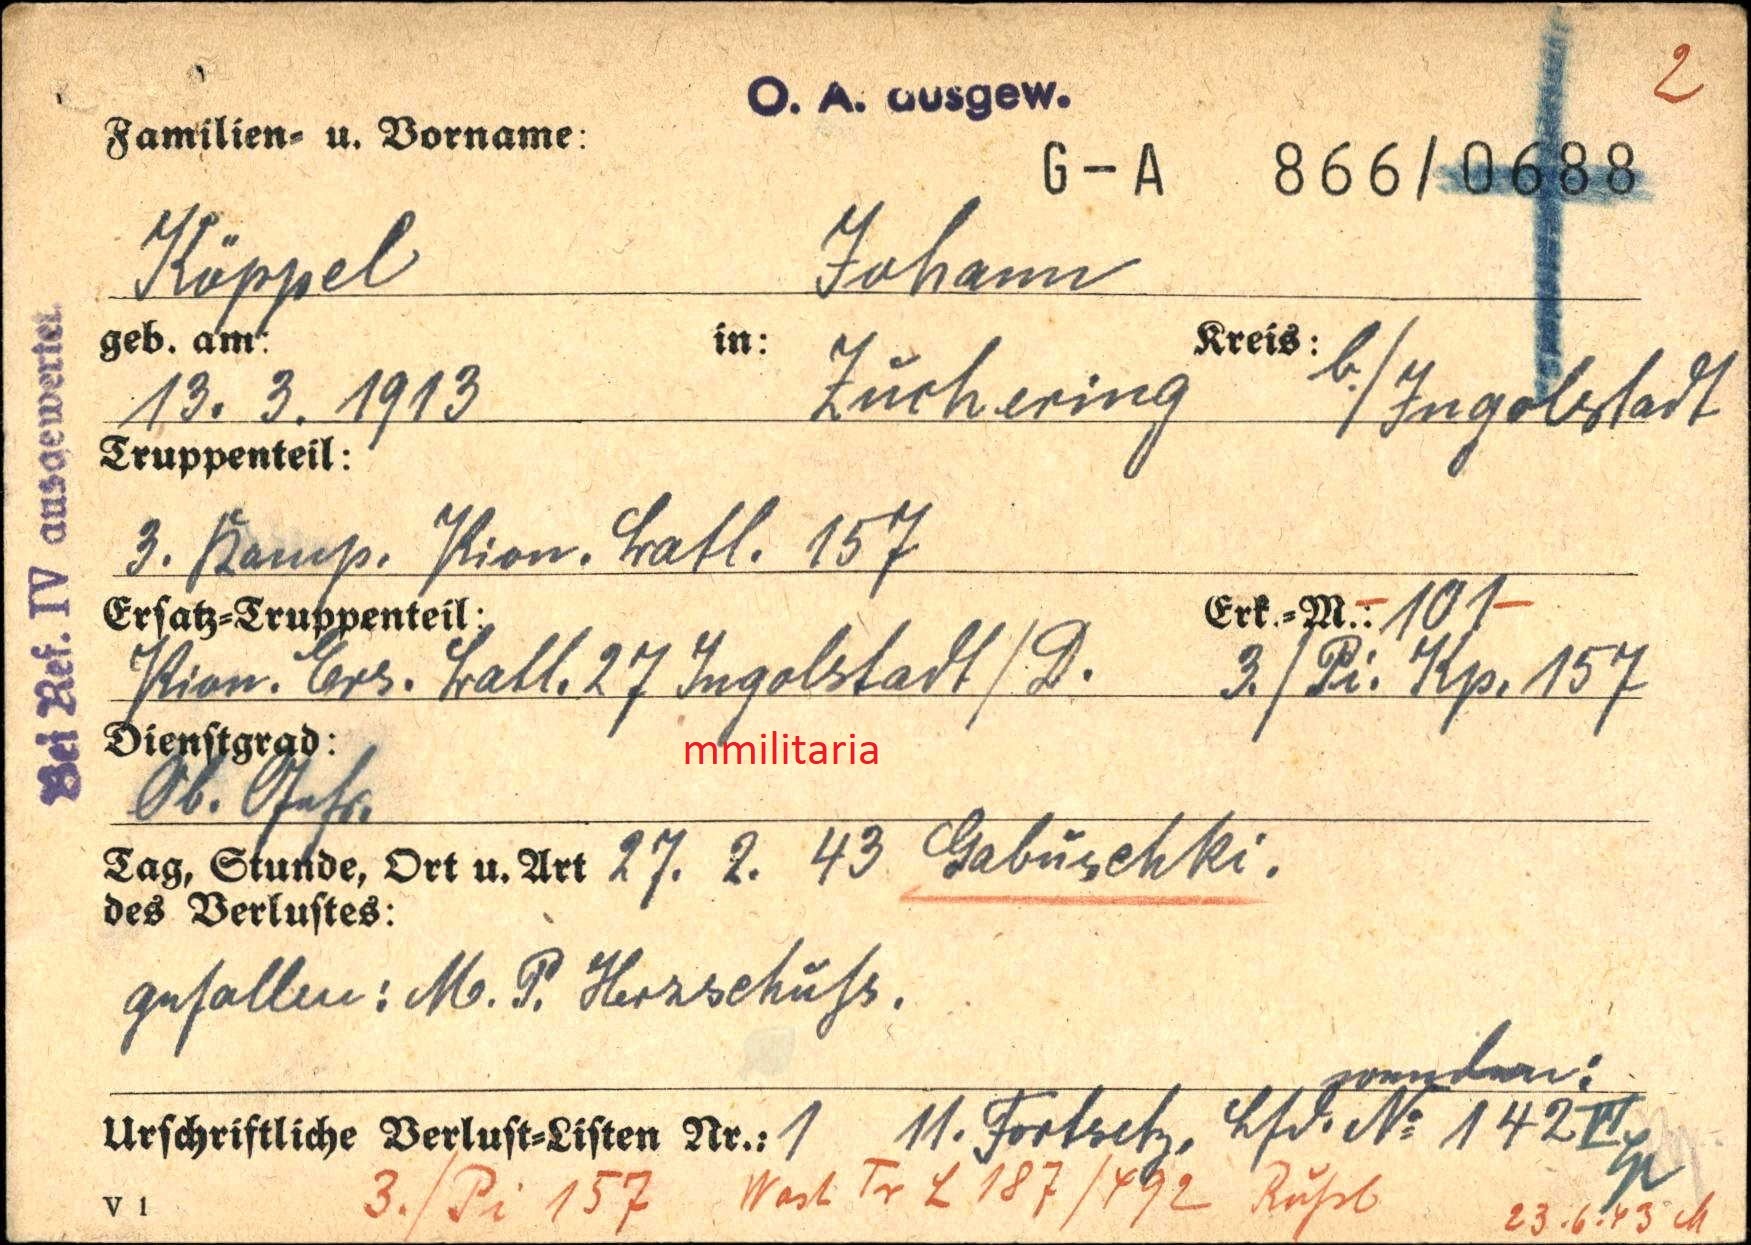 2
O. A. ausgew.
Familien- u. Vorname:
G-A 866/0688
Köppel Johann
geb. am: in: Kreis:
13. 3. 1913 Zuchering b./Ingolstadt
Truppenteil:
3. Komp. Pion. Batl. 157
Ersatz-Truppenteil: Erk.-M.: -101-
Pion. Ers. Batl. 27 Ingolstadt/D. 3./Pi. Kp. 157
Dienstgrad:
mmilitaria
Ob. Gefr.
Tag, Stunde, Ort u. Art 27. 2. 43 Gabuschki.
des Verlustes:
gefallen: M. P. Herzschuß.
wenden:
Urschriftliche Verlust-Listen Nr.: 1 11. Fortsetz. Lfd. No 142
3./Pi 157 Wast Tr L 187/492 Rußl
V 1
23.6.43
Bei Ref. IV ausgewertet.